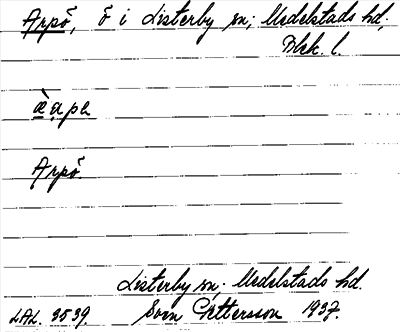 Arpö, ö i Listerby sn; Medelstads hd,
Blek. l.
Arpö.
Listerby sn; Medelstads hd.
LAL. 3539. Sven Pettersson 1937.